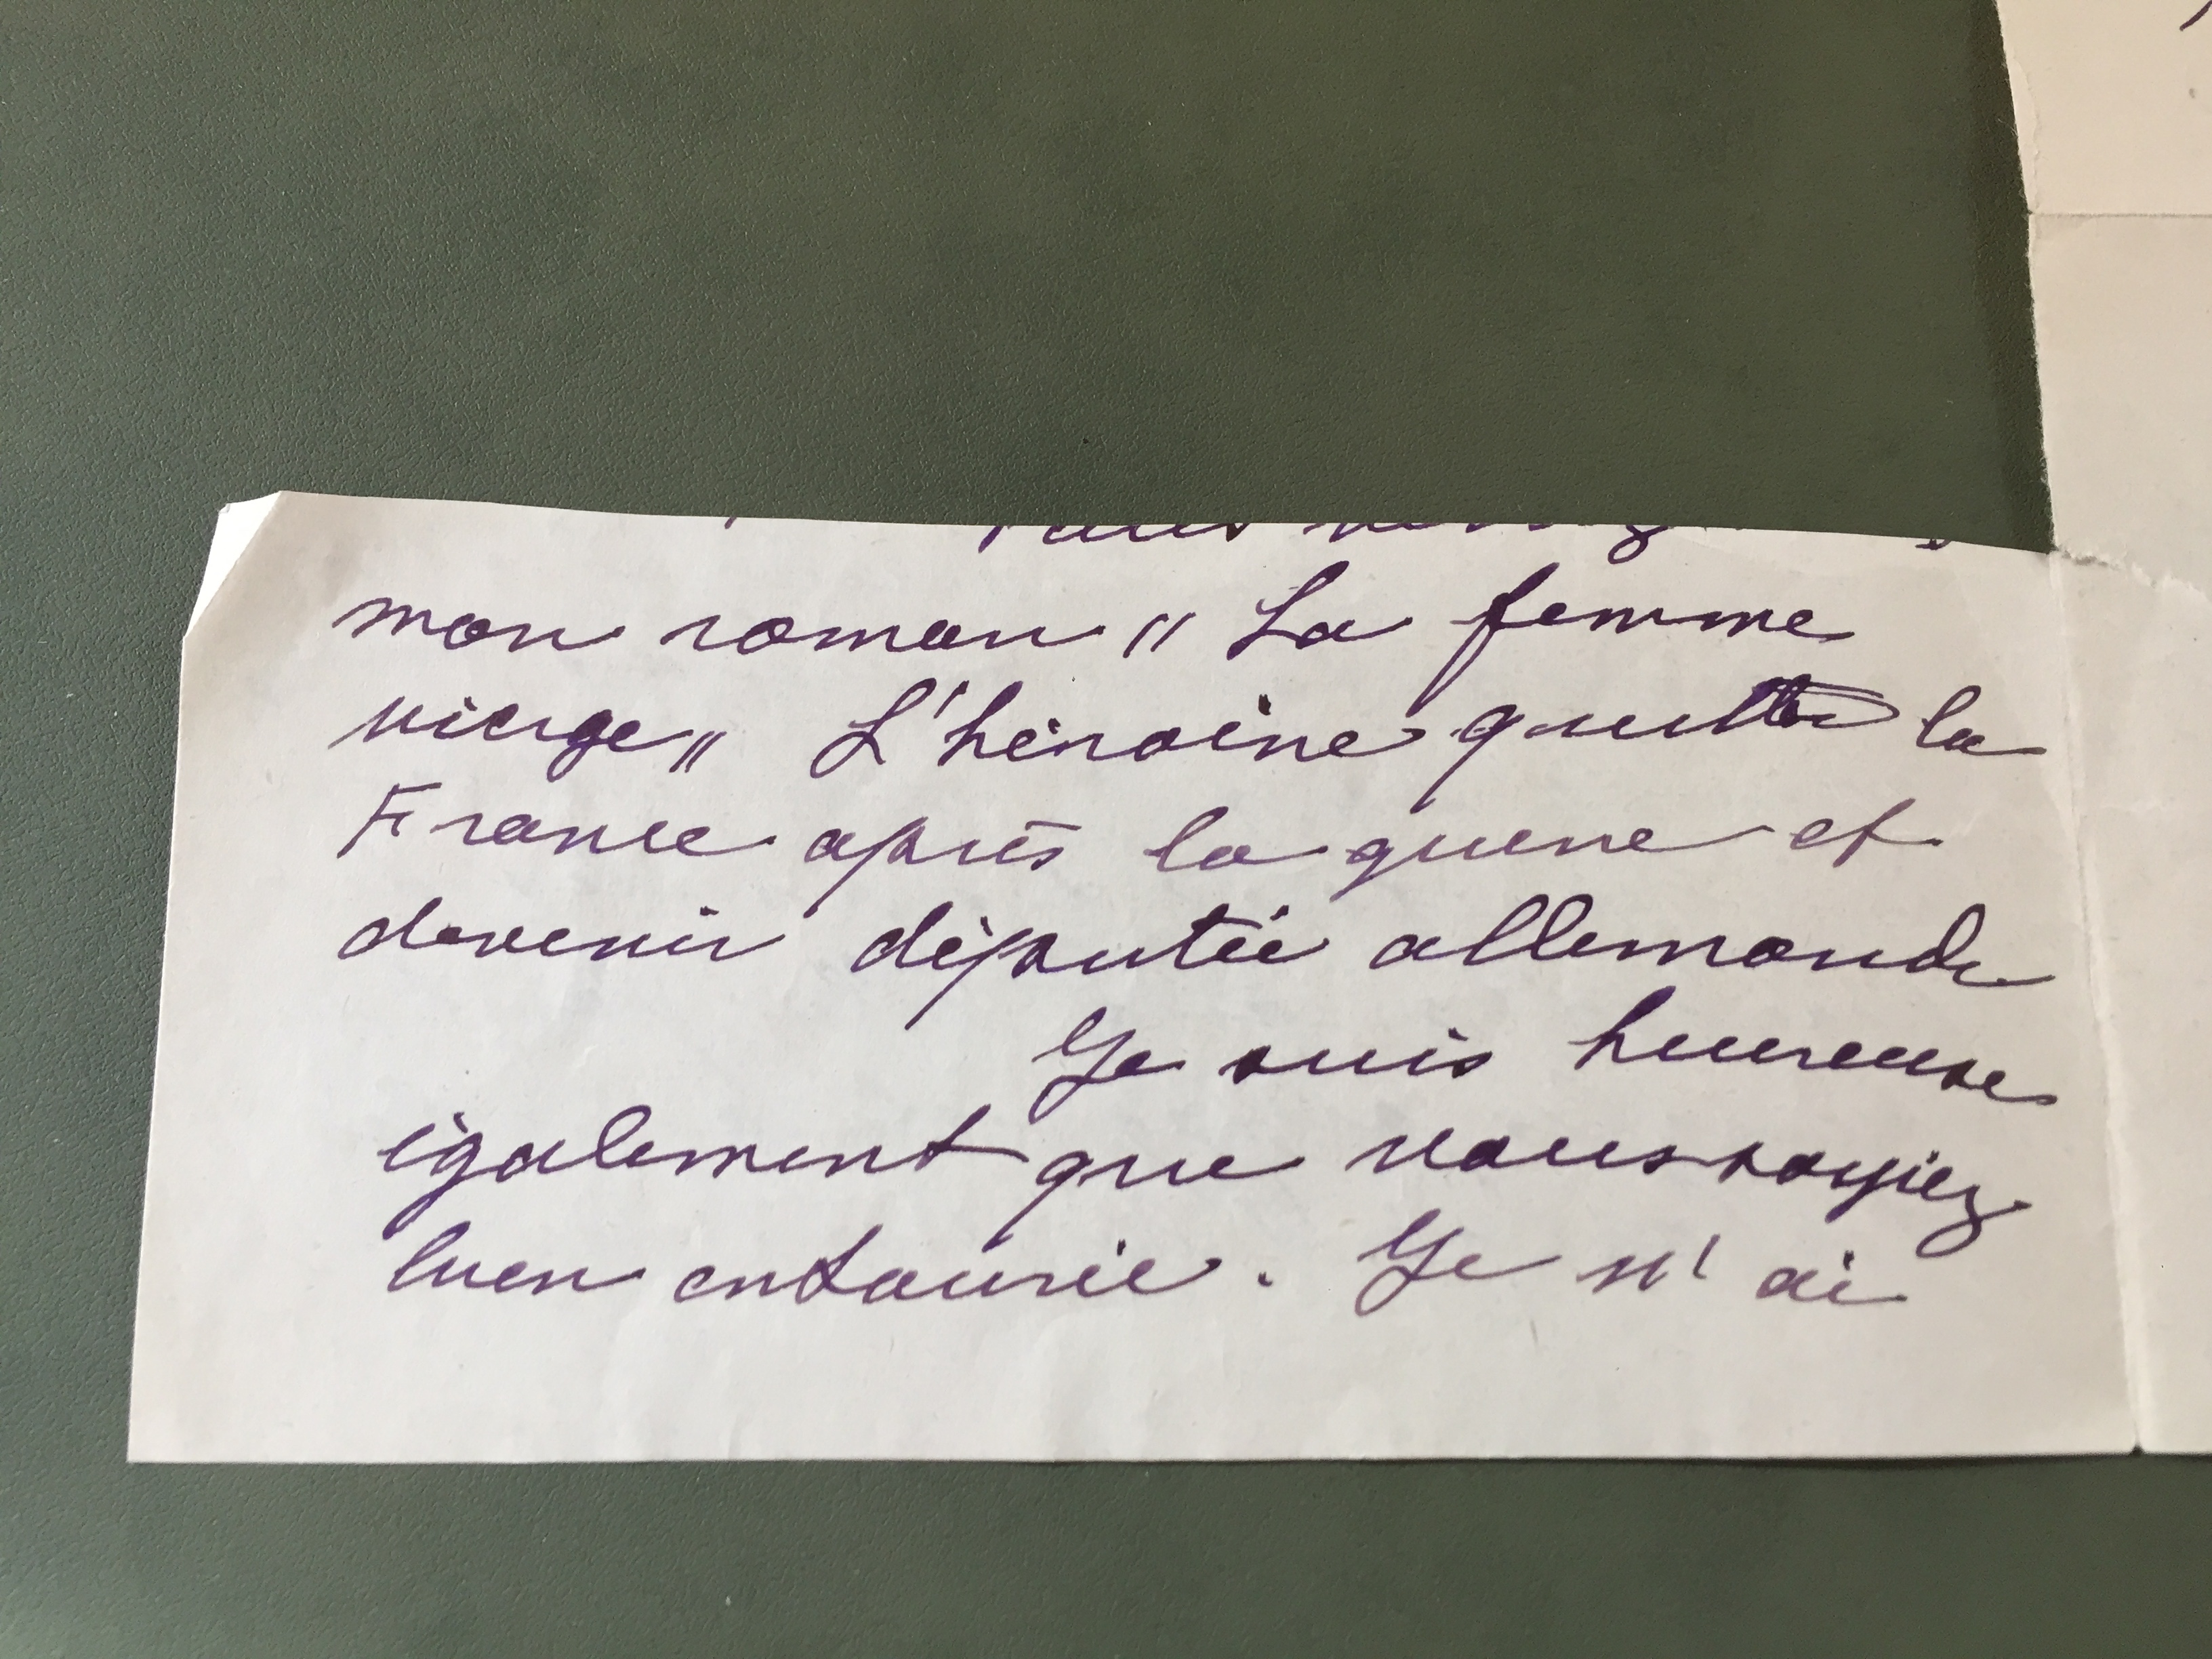 mon roman " La femme
vierge" L'héroïne quitte la
France après la guerre et
devenir députée allemande
Je suis heureuse
également que vous soyiez
bien entourée. Je n'ai